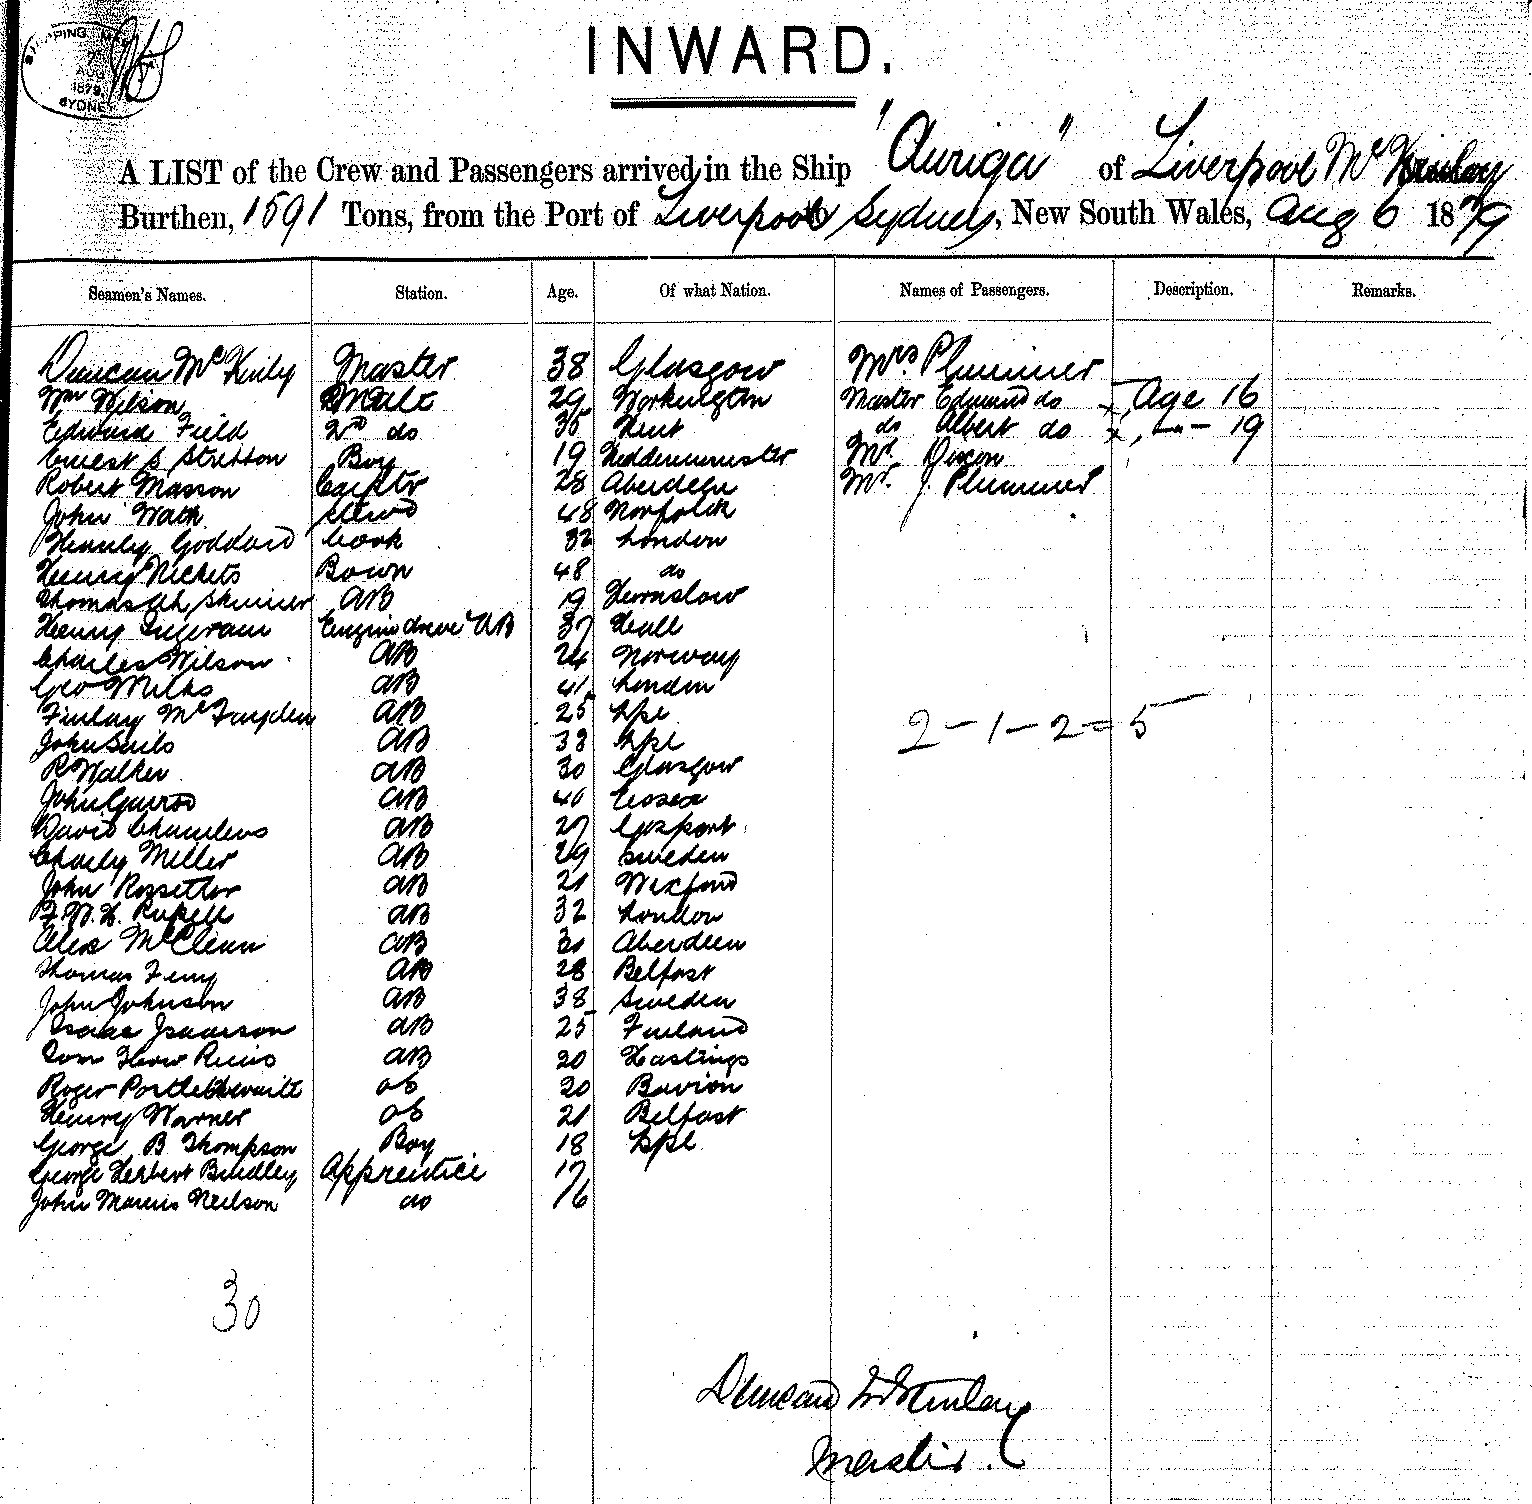 SHIPPING
1879
SYDNEY
INWARD.
A LIST of the Crew and Passengers arrived in the Ship "Auriga" of Liverpool Mc Kinlay
Burthen, 1591 Tons, from the Port of Liverpool to Sydney, New South Wales, Aug 6 1879
Seamen's Names. Station. Age. Of what Nation. Names of Passengers. Description. Remarks.
Duncan Mc Kinly Master 38 Glasgow Mrs. Plummer
Wm Wilson Mate 29 Workington Master Edmund do Age 16
Edward Field 2nd do 35 Kent do Albert do 19
Ernest S Stretton Boy 19 Kedderminster Mr. Dixon
Robert Masson Carptr 28 Aberdeen Mr. J. Plummer
John Stewd 48 Norfolk
Goddard Cook 32 London
Henry Rickets Bosun 48 do
Thomas Skinner AB 19 Hounslow
Henry Ingeram Engine drive AB 37 Hull
Charles Wilson AB 24 Norway
Geo Milks AB 41 London
Finlay Mc Fayden AB 25 Lpl
John AB 38 Lpl
R Walker AB 30 Glasgow
John AB 40 Essex
David Chambers AB 27 Gosport
Charly Miller AB 29 Sweden
John Rossetter AB 21 Wexford
AB 32 London
Alex McClean AB 30 Aberdeen
Thomas AB 28 Belfast
John Johnson AB 38 Sweden
Isaac Isaacson AB 25 Finland
AB 20 Hastings
Roger Postlethwaite OS 20
Henry Warner OS 21 Belfast
George B. Thompson Boy 18 Lpl
George Herbert Bradley Apprentice 17
John Morris Neilson do 16
2 - 1 - 2 = 5
30
Duncan McKinlay
Master.